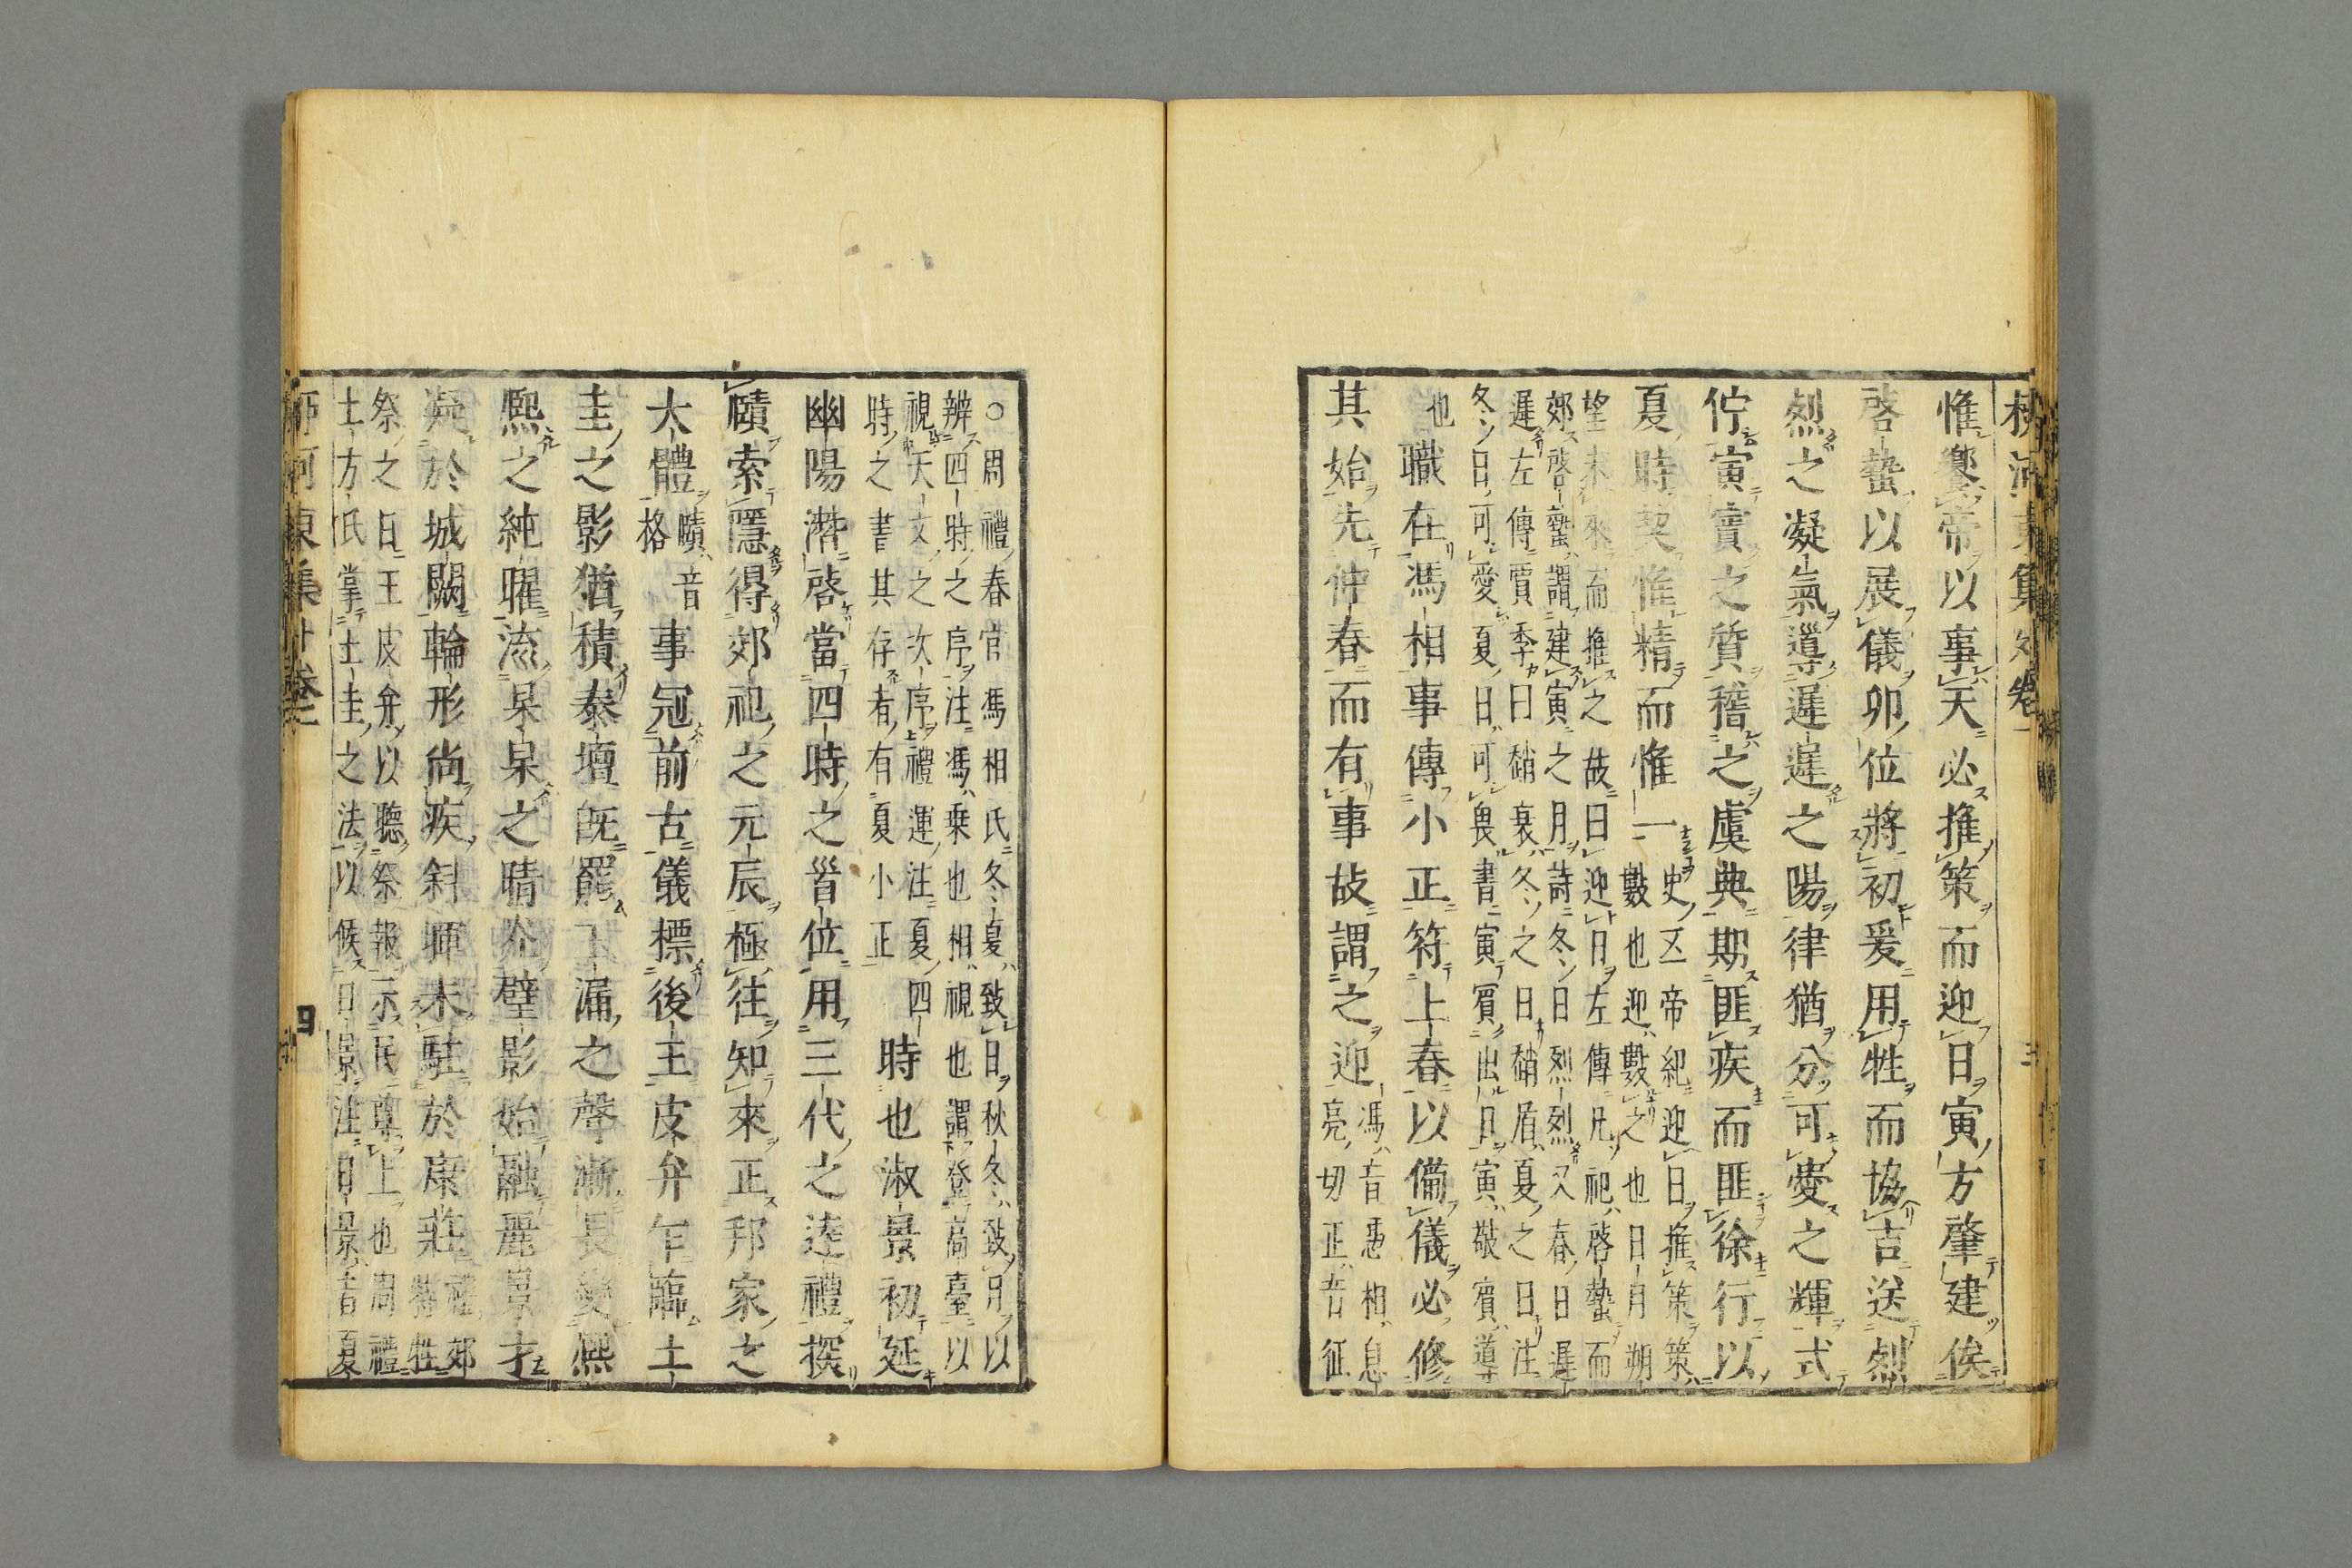 惟饗帝以事天必推策而迎日寅方肇建俟
啓蟄以展儀卯位將初爰用牲而協吉送烈
烈之凝氣導遲遲之陽律猶分可愛之輝式
佇寅賓之質稽之虞典期匪疾而匪徐行以
夏時契惟精而惟一史五帝紀迎日推策策
數也迎數之也日月朔
望未來而推之故曰迎日左傳凡祀啓蟄而
郊啓蟄謂建寅之月詩冬日烈烈又春日遲
遲左傳賈季曰趙衰冬之日趙盾夏之日注
冬日可愛夏日可畏書寅賓出日寅敬賓導
也職在馮相事傳小正符上春以備儀必修
其始先仲春而有事故謂之迎馮音憑相息
亮切正音征
○周禮春官馮相氏冬夏致日秋冬致月以
辨四時之序注馮乗也相視也謂登高臺以
視天文之次序禮運注夏四
時之書其存者有夏小正時也淑景初延
幽陽潛啓當四時之首位用三代之達禮探
賾索隱得郊祀之元辰極往知來正邦家之
大體賾音格事冠前古儀標後王皮弁乍臨土
圭之影猶積泰壇既罷玉漏之聲漸長變熈
熈之純曜流杲杲之晴光璧影始融麗景才
凝於城闕輪形尚疾斜暉未駐於康莊禮郊
特牲
祭之日王皮弁以聽祭報示民尊上也周禮
土方氏掌土圭之法以候日景注日景音夏